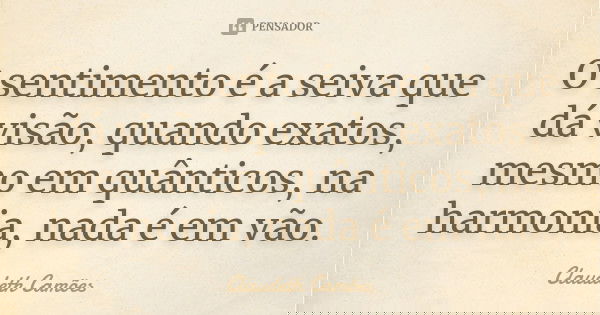 PENSADOR
O sentimento é a seiva que
dá visão, quando exatos,
mesmo em quânticos, na
harmonia, nada é em vão.
Claudeth Camões